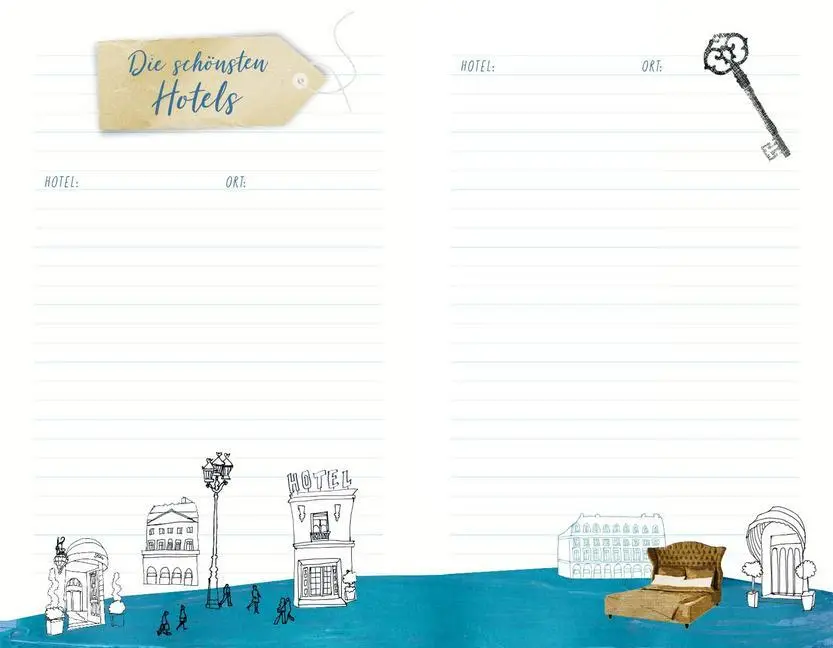 Die schönsten
Hotels
HOTEL: ORT:
HOTEL
HOTEL: ORT: